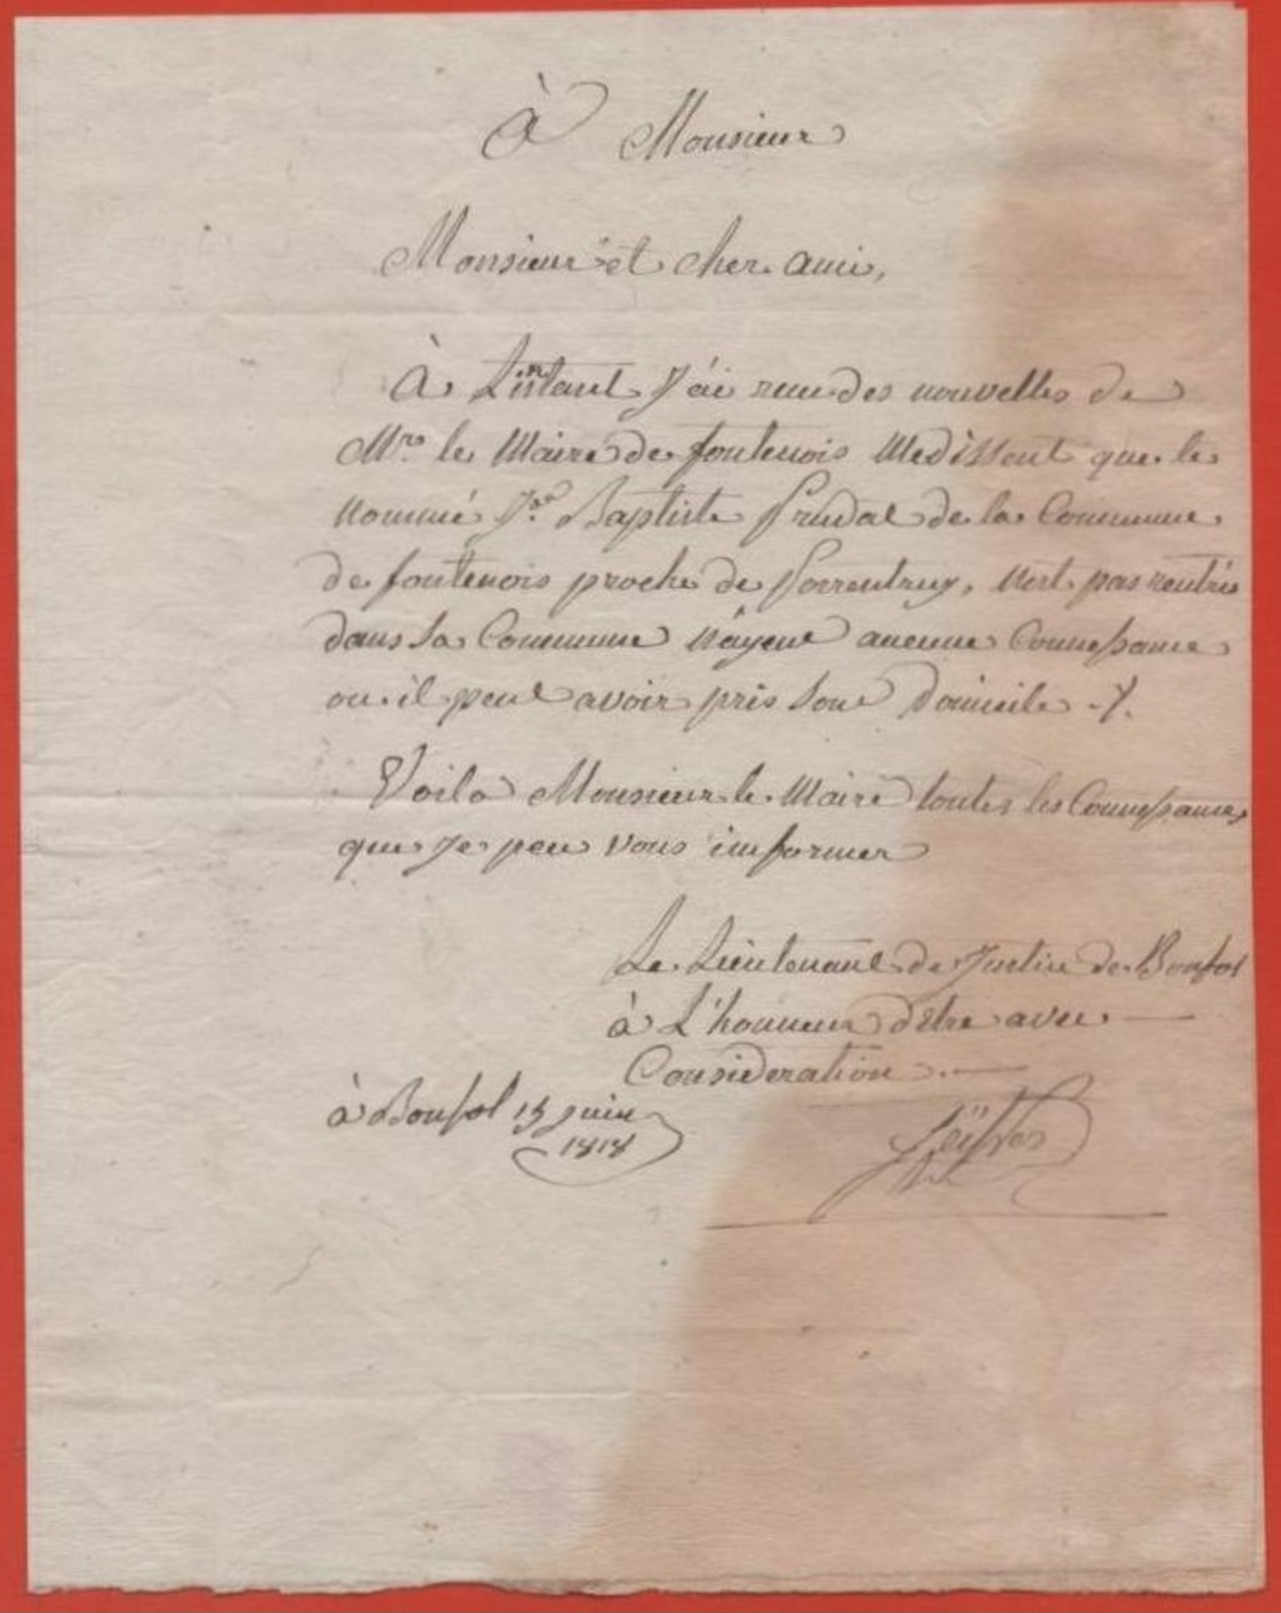 à Monsieur
Monsieur et cher ami,
À Linstant J'ai reuu des nouvelles de
Mr. le Maire de fontenois Medissent que le
nommé Jn. Baptiste Prudat de la Commune
de fontenois proche de Porrentruy, n'est pas rentrés
dans sa Commune n'ayent aucune Connessance
ou il peut avoir pris son Domicile ./.
Voila Monsieur le Maire toutes les Connessances
que Je peu vous imformer
Le Lieutenant de Justice de Bonfol
à L'honneur d'etre avec
Consideration .
à Bonfol 15 juin
1818